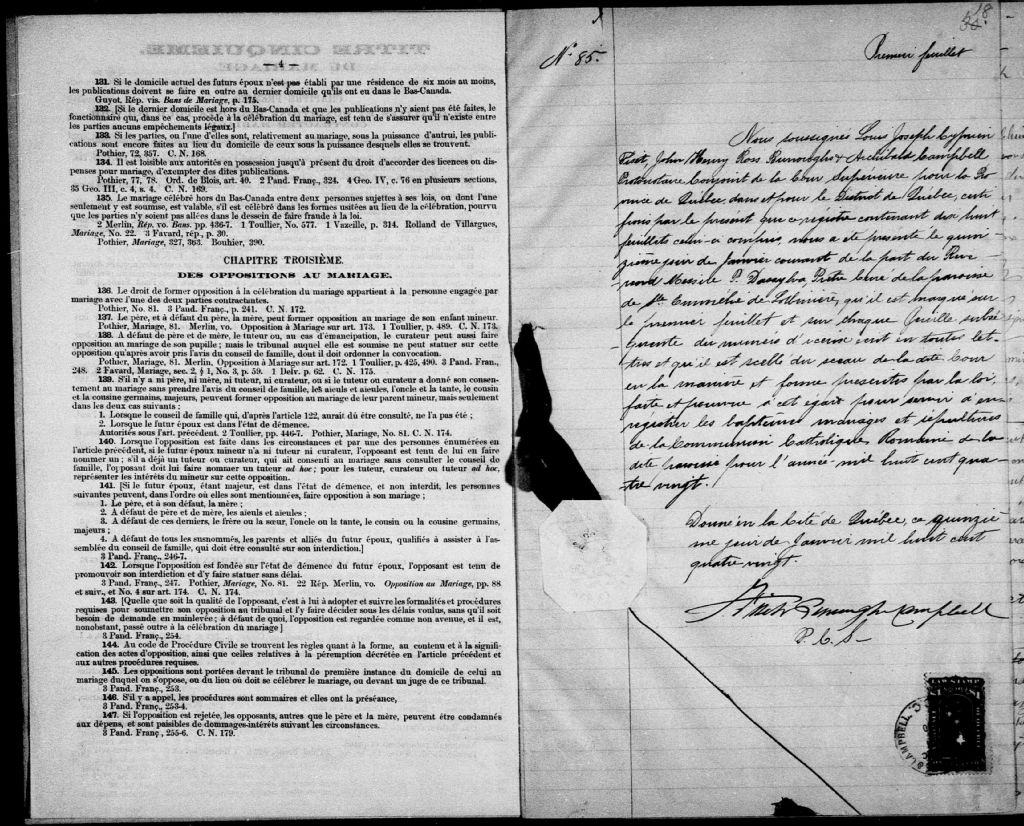 — 4 —
131. Si le domicile actuel des futurs époux n'est pas établi par une résidence de six mois au moins,
les publications doivent se faire en outre au dernier domicile qu'ils ont eu dans le Bas-Canada.
Guyot. Rép. vis. Bans de Mariage, p. 175.
132. [Si le dernier domicile est hors du Bas-Canada et que les publications n'y aient pas été faites, le
fonctionnaire qui, dans ce cas, procède à la célébration du mariage, est tenu de s'assurer qu'il n'existe entre
les parties aucuns empêchements légaux.]
133. Si les parties, ou l'une d'elles sont, relativement au mariage, sous la puissance d'autrui, les publi-
cations sont encore faites au lieu du domicile de ceux sous la puissance desquels elles se trouvent.
Pothier, 72, 357. C. N. 168.
134. Il est loisible aux autorités en possession jusqu'à présent du droit d'accorder des licences ou dis-
penses pour mariage, d'exempter des dites publications.
Pothier, 77, 78. Ord. de Blois, art. 40. 2 Pand. Franç., 324. 4 Geo. IV, c. 76 en plusieurs sections,
35 Geo. III, c. 4, s. 4. C. N. 169.
135. Le mariage célébré hors du Bas-Canada entre deux personnes sujettes à ses lois, ou dont l'une
seulement y est soumise, est valable, s'il est célébré dans les formes usitées au lieu de la célébration, pourvu
que les parties n'y soient pas allées dans le dessein de faire fraude à la loi.
2 Merlin, Rép. vo. Bans. pp. 436-7. 1 Toullier, No. 577. 1 Vazeille, p. 314. Rolland de Villargues,
Mariage, No. 22. 3 Favard, rép., p. 30.
Pothier, Mariage, 327, 363. Bouhier, 390.
CHAPITRE TROISIÈME.
DES OPPOSITIONS AU MARIAGE.
136. Le droit de former opposition à la célébration du mariage appartient à la personne engagée par
mariage avec l'une des deux parties contractantes.
Pothier, No. 81. 3 Pand. Franç., p. 241. C. N. 172.
137. Le père, et à défaut du père, la mère, peut former opposition au mariage de son enfant mineur.
Pothier, Mariage, 81. Merlin, vo. Opposition à Mariage sur art. 173. 1 Toullier, p. 489. C. N. 173.
138. A défaut de père et de mère, le tuteur ou, au cas d'émancipation, le curateur peut aussi faire
opposition au mariage de son pupille ; mais le tribunal auquel elle est soumise ne peut statuer sur cette
opposition qu'après avoir pris l'avis du conseil de famille, dont il doit ordonner la convocation.
Pothier, Mariage, 81. Merlin, Opposition à Mariage sur art. 172. 1 Toullier, p. 425, 490. 3 Pand. Fran.,
248. 2 Favard, Mariage, sec. 2, § 1, No. 3, p. 59. 1 Delv. p. 62. C. N. 175.
139. S'il n'y a ni père, ni mère, ni tuteur, ni curateur, ou si le tuteur ou curateur a donné son consen-
tement au mariage sans prendre l'avis du conseil de famille, les aieuls et aieules, l'oncle et la tante, le cousin
et la cousine germains, majeurs, peuvent former opposition au mariage de leur parent mineur, mais seulement
dans les deux cas suivants :
1. Lorsque le conseil de famille qui, d'après l'article 122, aurait dû être consulté, ne l'a pas été ;
2. Lorsque le futur époux est dans l'état de démence.
Autorités sous l'art. précédent. 2 Toullier, pp. 446-7. Pothier, Mariage, No. 81. C. N. 174.
140. Lorsque l'opposition est faite dans les circonstances et par une des personnes énumérées en
l'article précédent, si le futur époux mineur n'a ni tuteur ni curateur, l'opposant est tenu de lui en faire
nommer un ; s'il a déjà un tuteur ou curateur, qui ait consenti au mariage sans consulter le conseil de
famille, l'opposant doit lui faire nommer un tuteur ad hoc ; pour les tuteur, curateur ou tuteur ad hoc,
représenter les intérêts du mineur sur cette opposition.
141. [Si le futur époux, étant majeur, est dans l'état de démence, et non interdit, les personnes
suivantes peuvent, dans l'ordre où elles sont mentionnées, faire opposition à son mariage ;
1. Le père, et à son défaut, la mère ;
2. A défaut de père et de mère, les aieuls et aieules ;
3. A défaut de ces derniers, le frère ou la sœur, l'oncle ou la tante, le cousin ou la cousine germains,
majeurs ;
4. A défaut de tous les susnommés, les parents et alliés du futur époux, qualifiés à assister à l'as-
semblée du conseil de famille, qui doit être consulté sur son interdiction.]
3 Pand. Franç., 246-7.
142. Lorsque l'opposition est fondée sur l'état de démence du futur époux, l'opposant est tenu de
promouvoir son interdiction et d'y faire statuer sans délai.
3 Pand. Franç., 247. Pothier, Mariage, No. 81. 22 Rép. Merlin, vo. Opposition au Mariage, pp. 88
et suiv., et No. 4 sur art. 174. C. N. 174.
143. [Quelque que soit la qualité de l'opposant, c'est à lui à adopter et suivre les formalités et procédures
requises pour soumettre son opposition au tribunal et l'y faire décider sous les délais voulus, sans qu'il soit
besoin de demande en mainlevée ; à défaut de quoi, l'opposition est regardée comme non avenue, et il est,
nonobstant, passé outre à la célébration du mariage]
3 Pand. Franç., 254.
144. Au code de Procédure Civile se trouvent les règles quant à la forme, au contenu et à la signifi-
cation des actes d'opposition, ainsi que celles relatives à la péremption décrétée en l'article précédent et
aux autres procédures requises.
145. Les oppositions sont portées devant le tribunal de première instance du domicile de celui au
mariage duquel on s'oppose, ou du lieu où doit se célébrer le mariage, ou devant un juge de ce tribunal.
3 Pand. Franç., 253.
146. S'il y a appel, les procédures sont sommaires et elles ont la préséance,
3 Pand. Franç., 253-4.
147. Si l'opposition est rejetée, les opposants, autres que le père et la mère, peuvent être condamnés
aux dépens, et sont paisibles de dommages-intérêts suivant les circonstances.
3 Pand. Franç, 255-6. C. N. 179.
18
No. 85.
Premier feuillet
Nous soussignés Louis Joseph Cyprien
Fiset, John Henry Ross Burroughs & Archibald Campbell
Protonotaire Conjoint de la Cour Supérieure pour la Pro
vince de Québec, dans et pour le District de Québec, certi
fions par le présent que ce registre contenant dix huit
feuillets celui-ci compris, nous a été présenté le quin-
zième jour de Janvier courant de la part du Rév-
rend Messire P. Prêtre Curé de la paroisse
de Ste Emmélie de Lotbinière, qu'il est marqué sur
le premier feuillet et sur chaque feuille subsé
quente du numéro d'icelui écrit en toutes let-
tres et qu'il est scellé du sceau de la dite Cour
en la manière et forme prescrites par la loi,
faite et pourvue à cet égard pour servir à en-
registrer les baptêmes mariages et sépultures
de la Communion Catholique Romaine de la
dite paroisse pour l'année mil huit cent qua-
tre vingt.
Donné en la Cité de Québec, ce quinziè
me jour de Janvier mil huit cent
quatre vingt.
Fiset Burroughs Campbell
P. C. S.
CAMPBELL